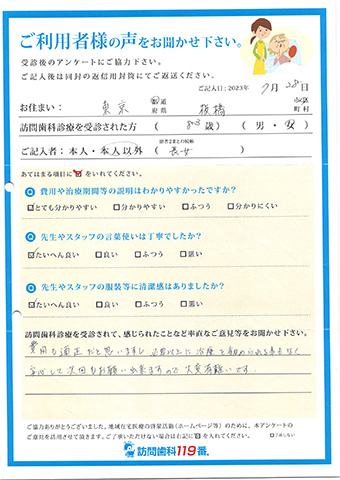 ご利用者様の声をお聞かせ下さい。
受診後のアンケートにご協力下さい。
ご記入後は同封の返信用封筒にてご返送ください。
ご記入日：2023年 7月 28日
お住まい： 東京 都道府県 板橋 市区町村
訪問歯科診療を受診された方 （ 83歳） （ 男・女 ）
ご記入者：本人・本人以外 （ 長女 ）
あてはまる項目に☑をいれてください。
Q 費用や治療期間等の説明はわかりやすかったですか？
☑とても分かりやすい □分かりやすい □ふつう □分かりにくい
Q 先生やスタッフの言葉使いは丁寧でしたか？
☑たいへん良い □良い □ふつう □悪い
Q 先生やスタッフの服装等に清潔感はありましたか？
☑たいへん良い □良い □ふつう □悪い
訪問歯科診療を受診されて、感じられたことなど率直なご意見等をお聞かせ下さい。
費用も適正だと思いますし 必要以上に治療を勧められる事もなく
安心して次回もお願い出来ますので 大変有難いです。
ご協力ありがとうございました。地域在宅医療の啓蒙活動（ホームページ等）のために、本アンケートの
ご意見を活用させて頂きます。ご了承いただけない場合は右記に☑を入れてください。 □了承しない
訪問歯科119番